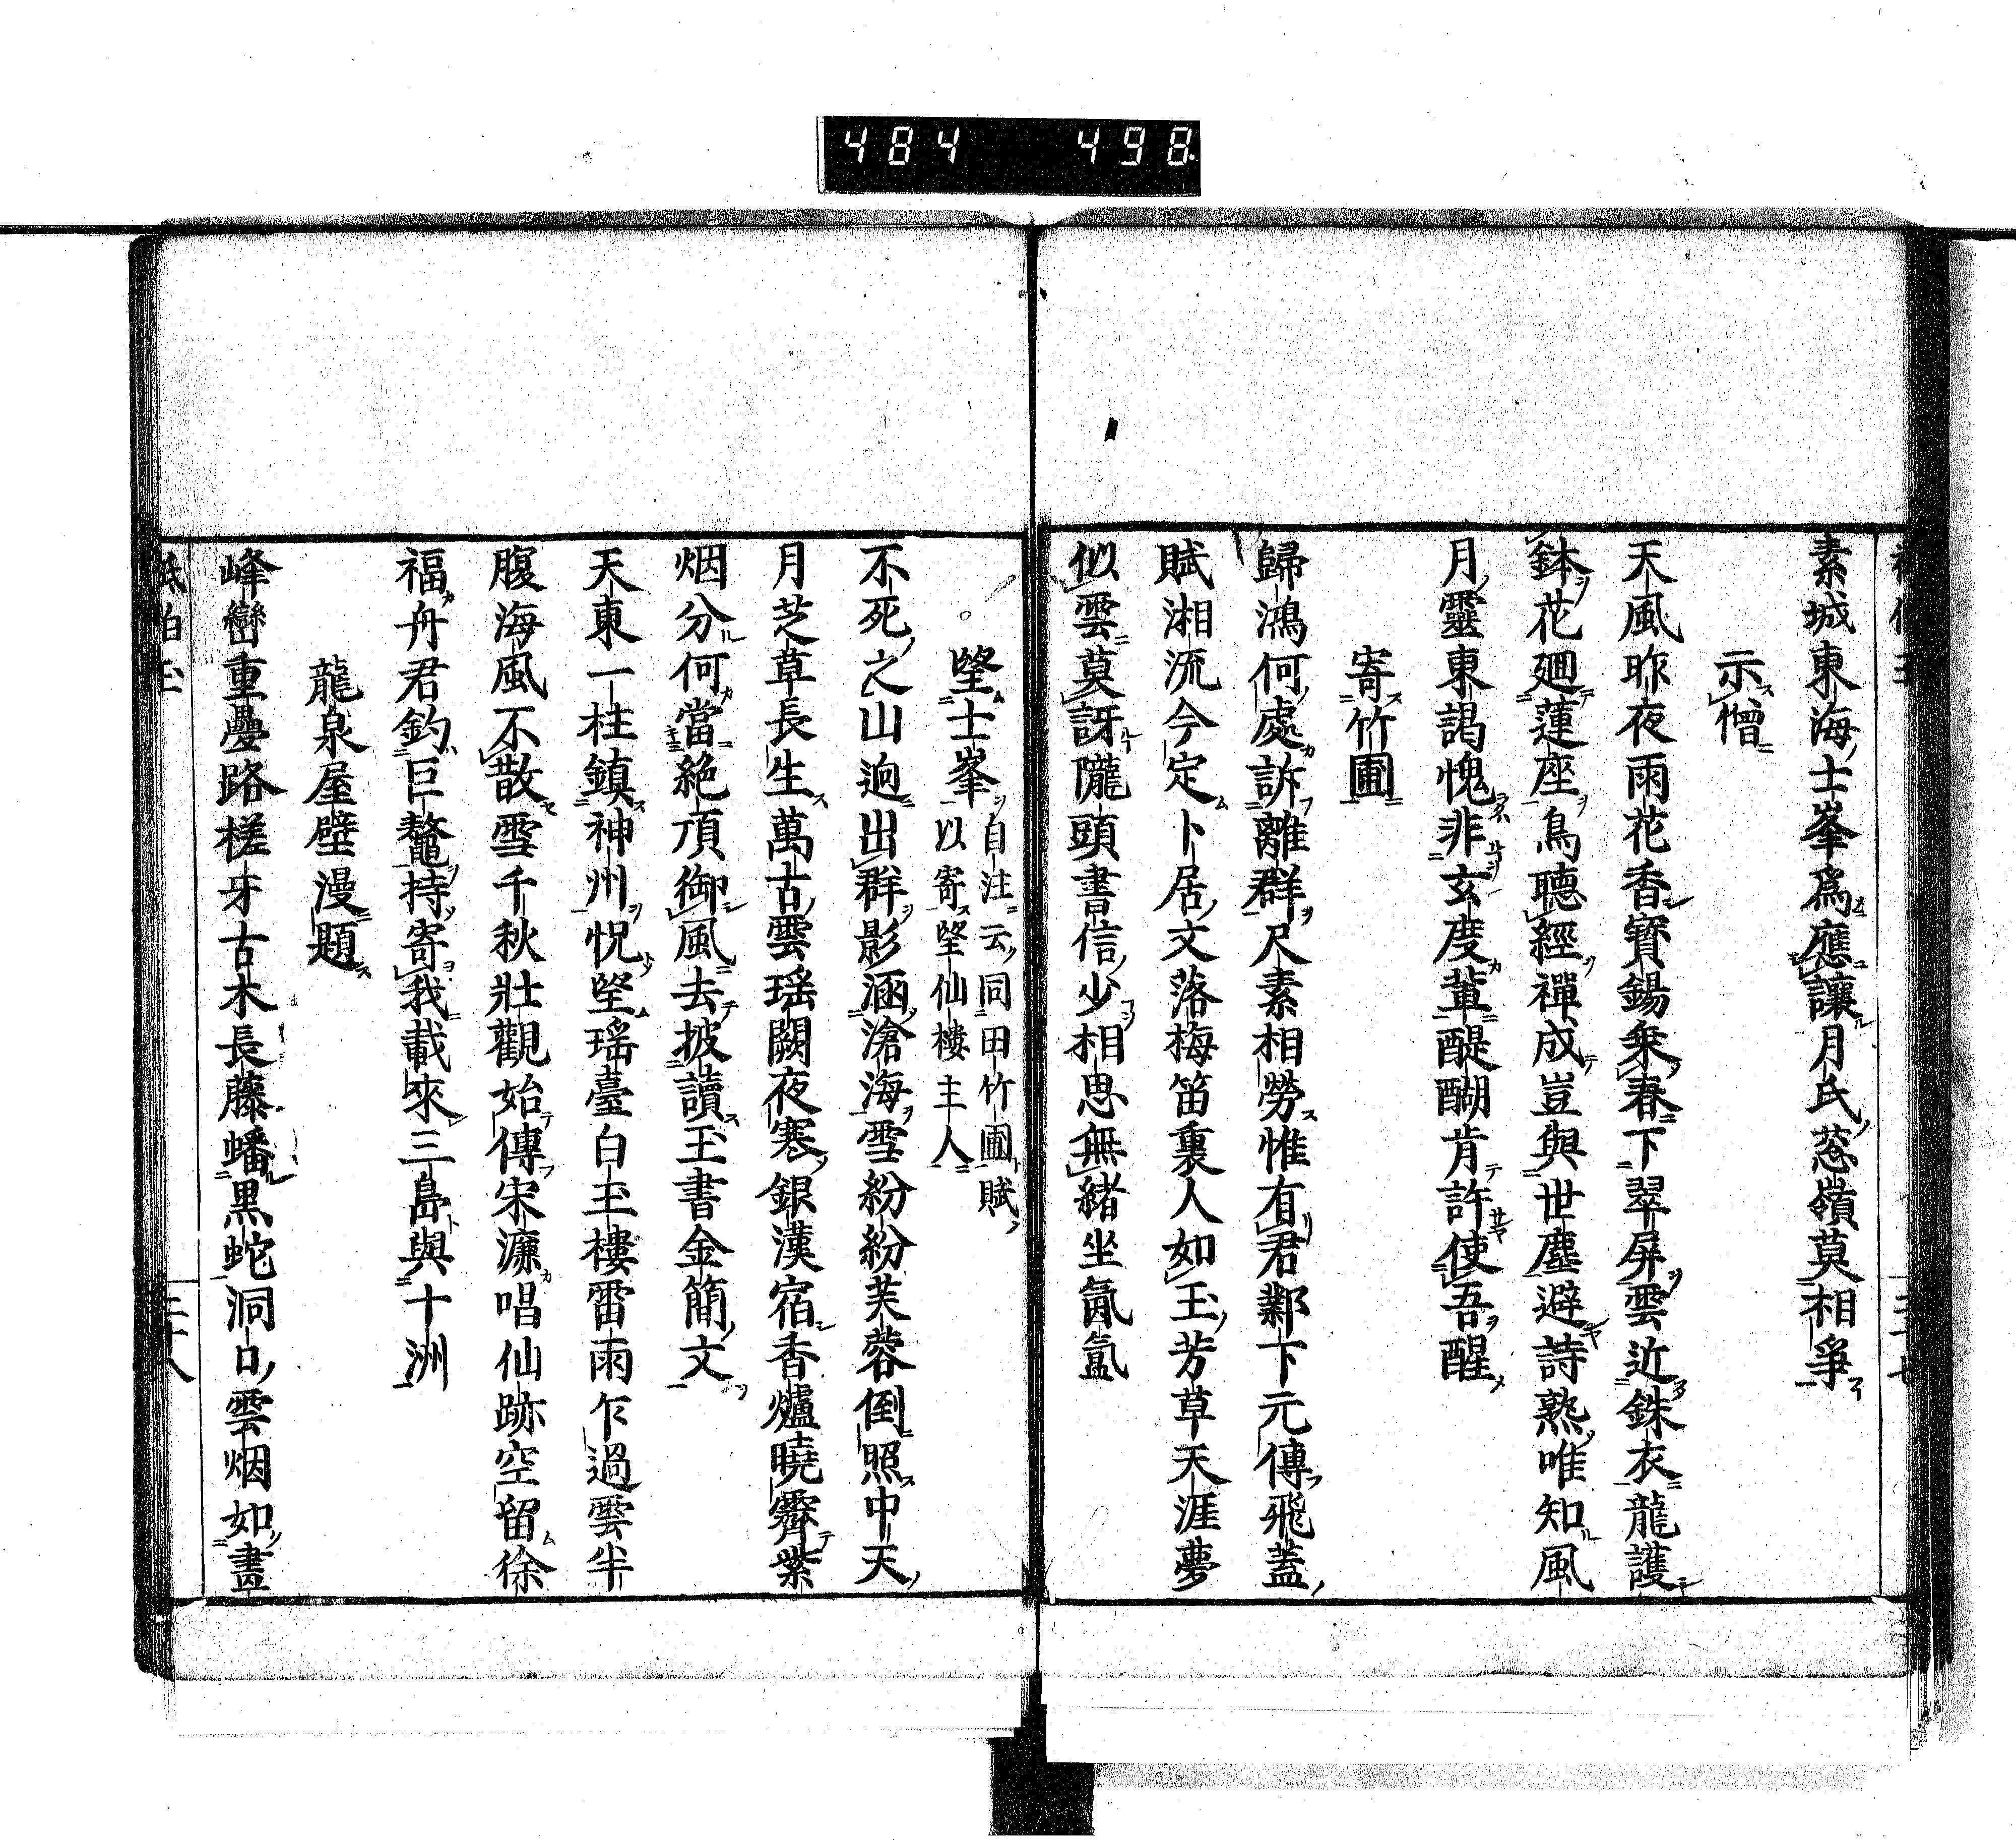 484 498
素城東海士峯爲應讓月氏葱嶺莫相爭
示憎
天風昨夜雨花香寶錫乘春下翠屏雲近銖衣龍護
鉢花迴蓮座鳥聽經禪成豈與世塵避詩熟唯知風
月靈東謁愧非玄度軰醍醐肯許使吾醒
寄竹圃
歸鴻何處訴離群尺素相勞惟有君鄴下元傳飛蓋
賦湘流今定卜居文落梅笛裏人如玉芳草天涯夢
似雲莫訝隴頭書信少相思無緒坐氤氳
望士峯
自注云同田竹圃賦
以寄望仙樓主人
不死之山逈出群影涵滄海雪紛紛芙蓉倒照中天
月芝草長生萬古雲瑶闕夜寒銀漢宿香爐曉霽紫
烟分何當絶頂御風去披讀玉書金簡文
天東一柱鎮神州怳望瑶臺白玉樓雷雨乍過雲半
腹海風不散雪千秋壯觀始傳宋濂唱仙跡空留徐
福舟君釣巨鼇持寄我載來三島與十洲
龍泉屋壁漫題
峰巒重疊路槎牙古木長藤蟠黒蛇洞口雲烟如畫